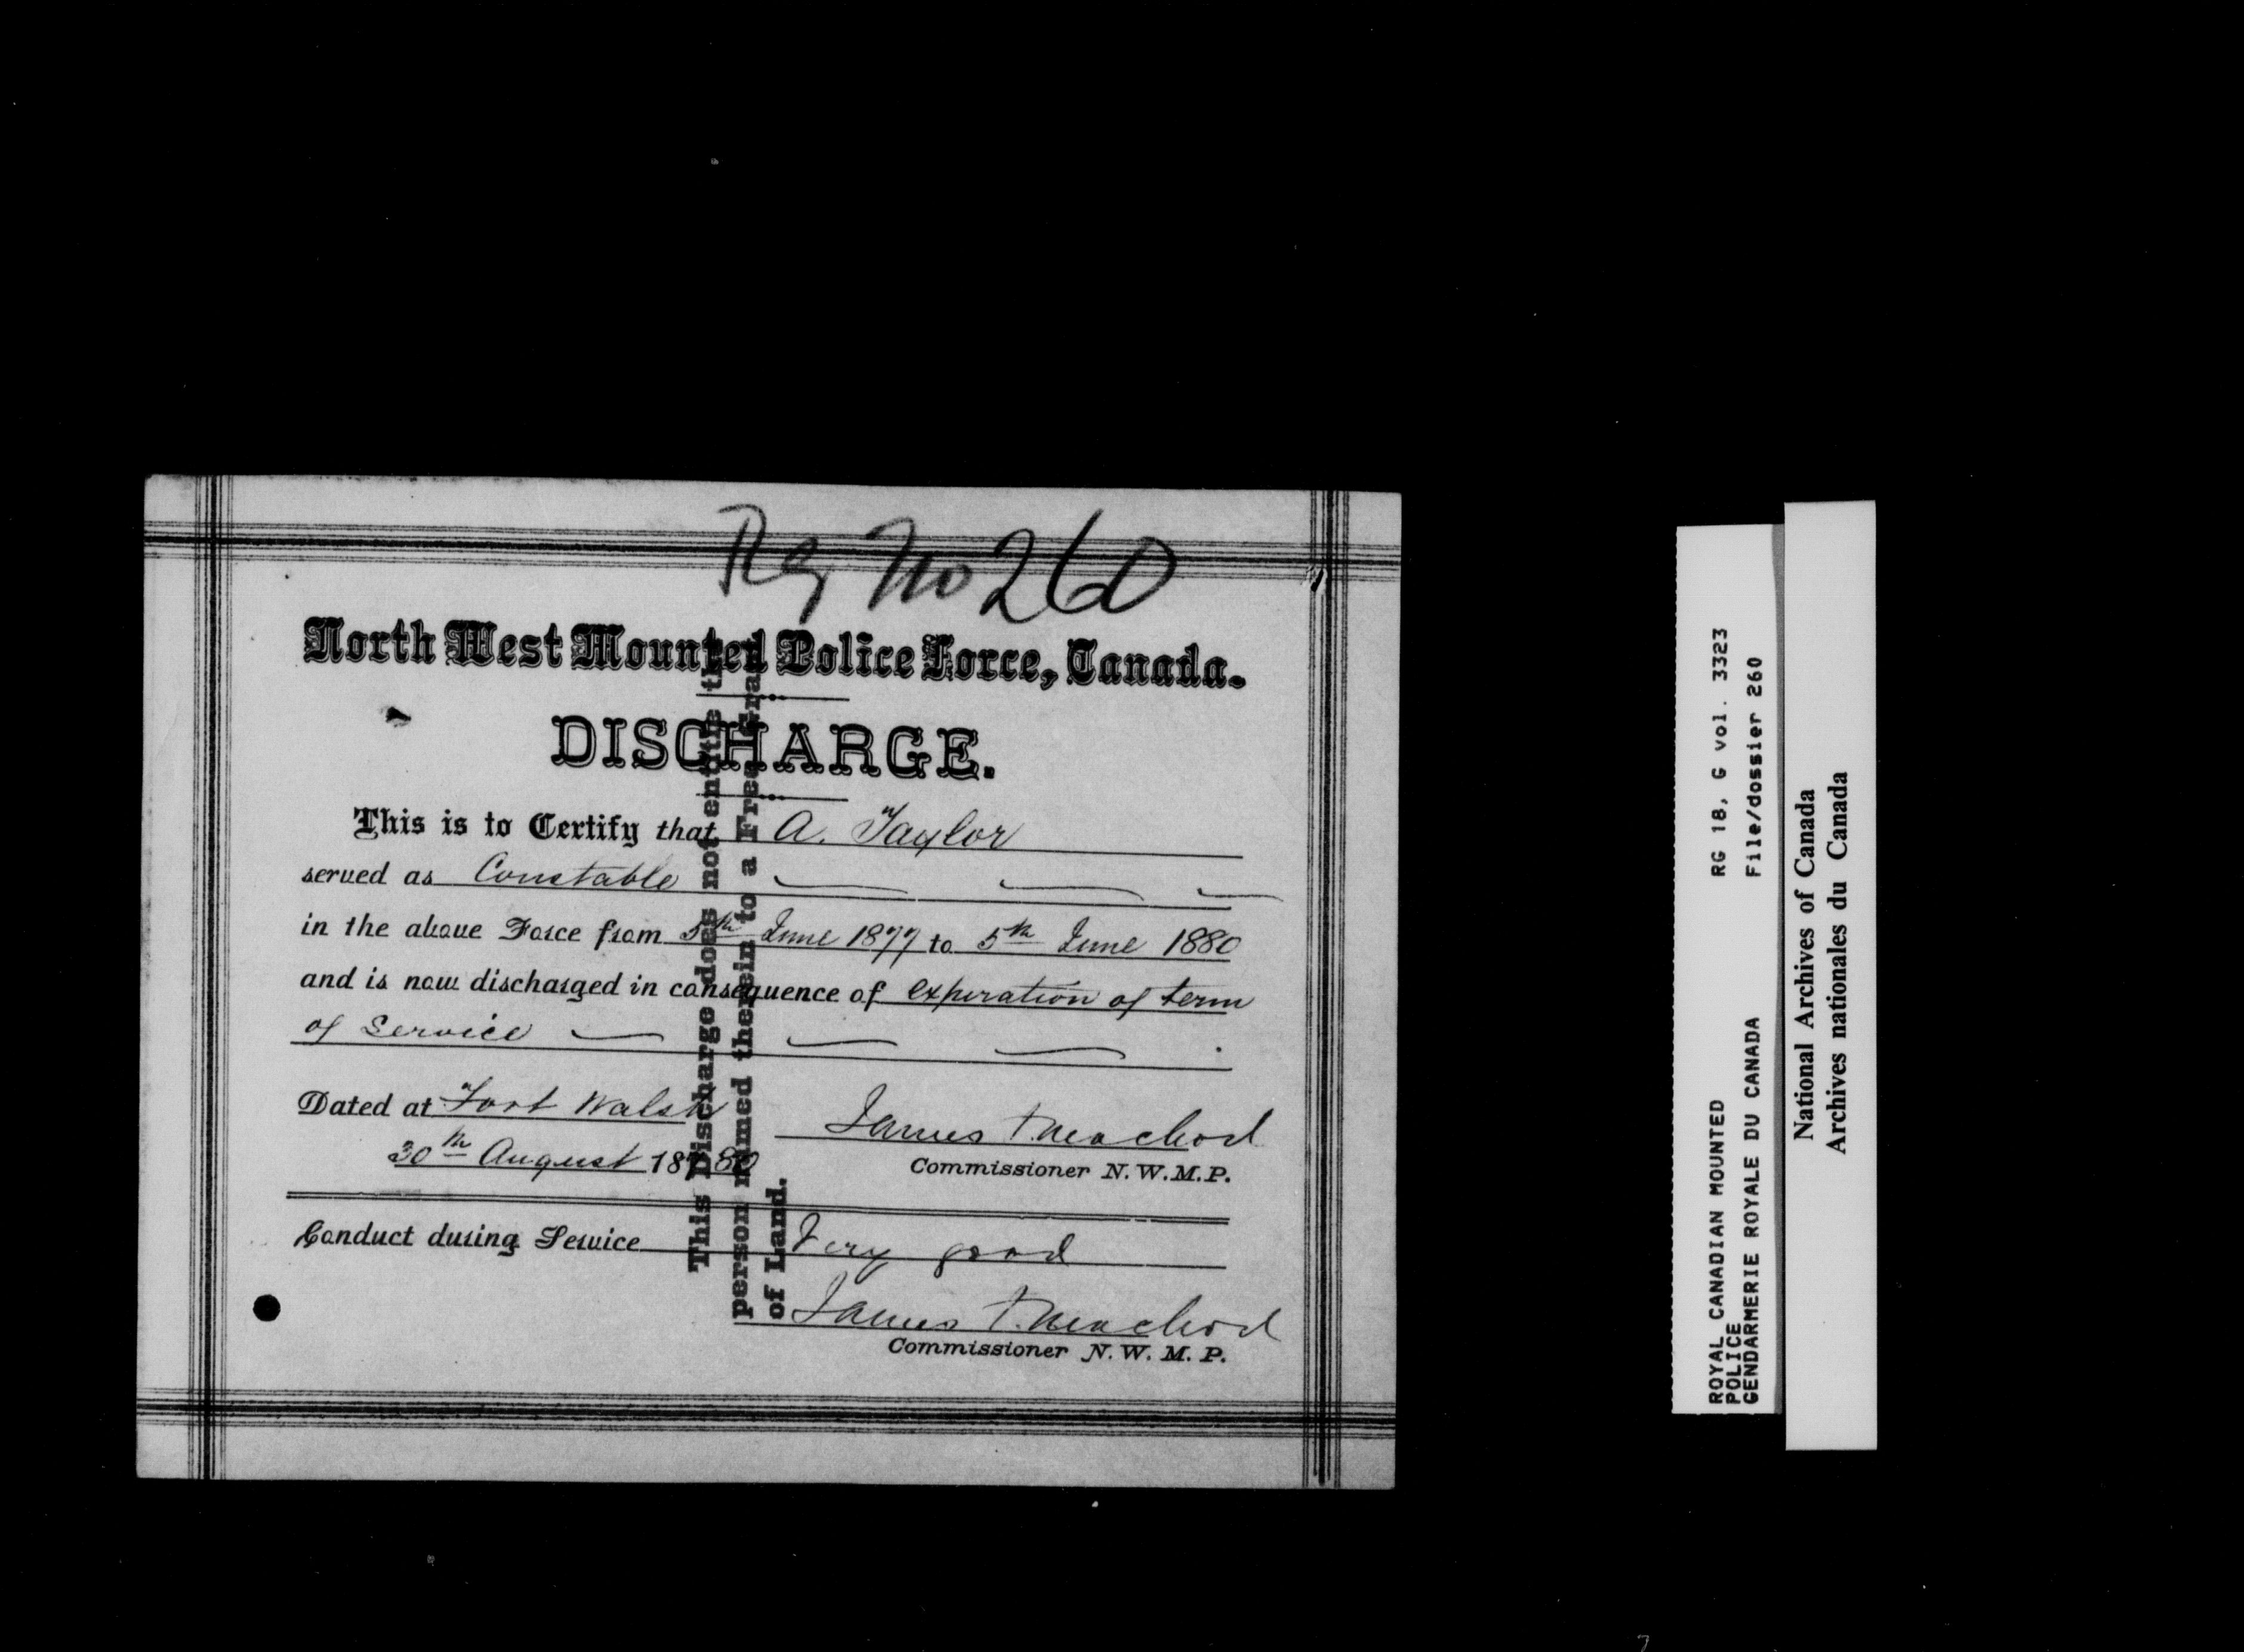 Reg No 260
North West Mounted Police Force, Canada.
DISCHARGE.
This is to Certify that A. Taylor
served as Constable
in the above Force from 5th June 1877 to 5th June 1880
and is now discharged in consequence of expiration of term
of Service
Dated at Fort Walsh
30th August 187 80
James F. Macleod
Commissioner N.W.M.P.
Conduct during Service Very good
James F. Macleod
Commissioner N. W. M. P.
This Discharge does not entitle the
person named therein to a Free Grant
of Land.
ROYAL CANADIAN MOUNTED RG 18, G vol. 3323
POLICE
GENDARMERIE ROYALE DU CANADA File/dossier 260
National Archives of Canada
Archives nationales du Canada